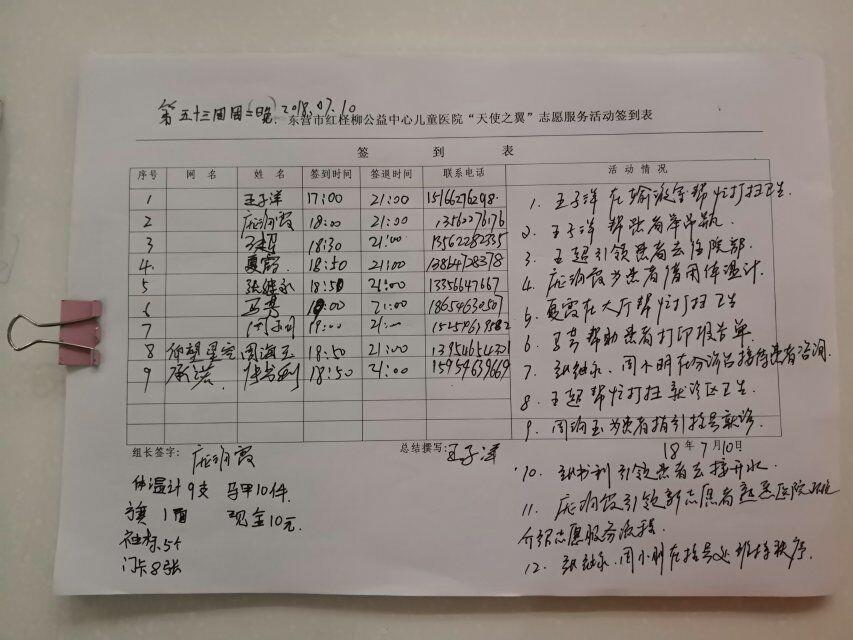 第五十三周周二晚 2018.07.10
东营市红柽柳公益中心儿童医院“天使之翼”志愿服务活动签到表
签 到 表
序号 网 名 姓 名 签到时间 签退时间 联系电话 活动情况
1 王子洋 17:00 21:00 15166276298
2 18:00 21:00 13562276176
3 王超 18:30 21:00 13562282335
4 夏霞 18:50 21:00 13864728378
5 张继永 18:50 21:00 13356647667
6 19:00 21:00 18654630507
7 19:00 21:00
8 仰望星空 周海玉 18:50 21:00 13954654321
9 承诺 18:50 21:00 15954639669
1. 王子洋在输液室帮忙打扫卫生.
2. 王子洋帮患者举吊瓶
3. 王超引领患者去住院部
4. 为患者借用体温计.
5. 夏霞在大厅帮忙打扫卫生
6. 帮助患者打印报告单.
7. 张继永、周小明在分诊台接待患者咨询.
8. 王超帮忙打扫就诊区卫生
9. 周海玉为患者指引挂号就诊
组长签字:
总结撰写: 王子洋
18年7月10日
10. 引领患者去接开水
11. 引领新志愿者熟悉医院环境
介绍志愿服务流程
12. 张继永、周小明在挂号处维持秩序.
体温计9支 马甲10件
旗 1面 现金10元.
袖标5个
门卡8张